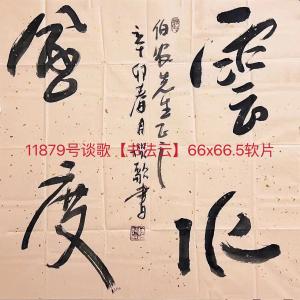 雲水
風度
伯安先生正之
辛卯春月談歌書
11879号谈歌【书法云】66x66.5软片